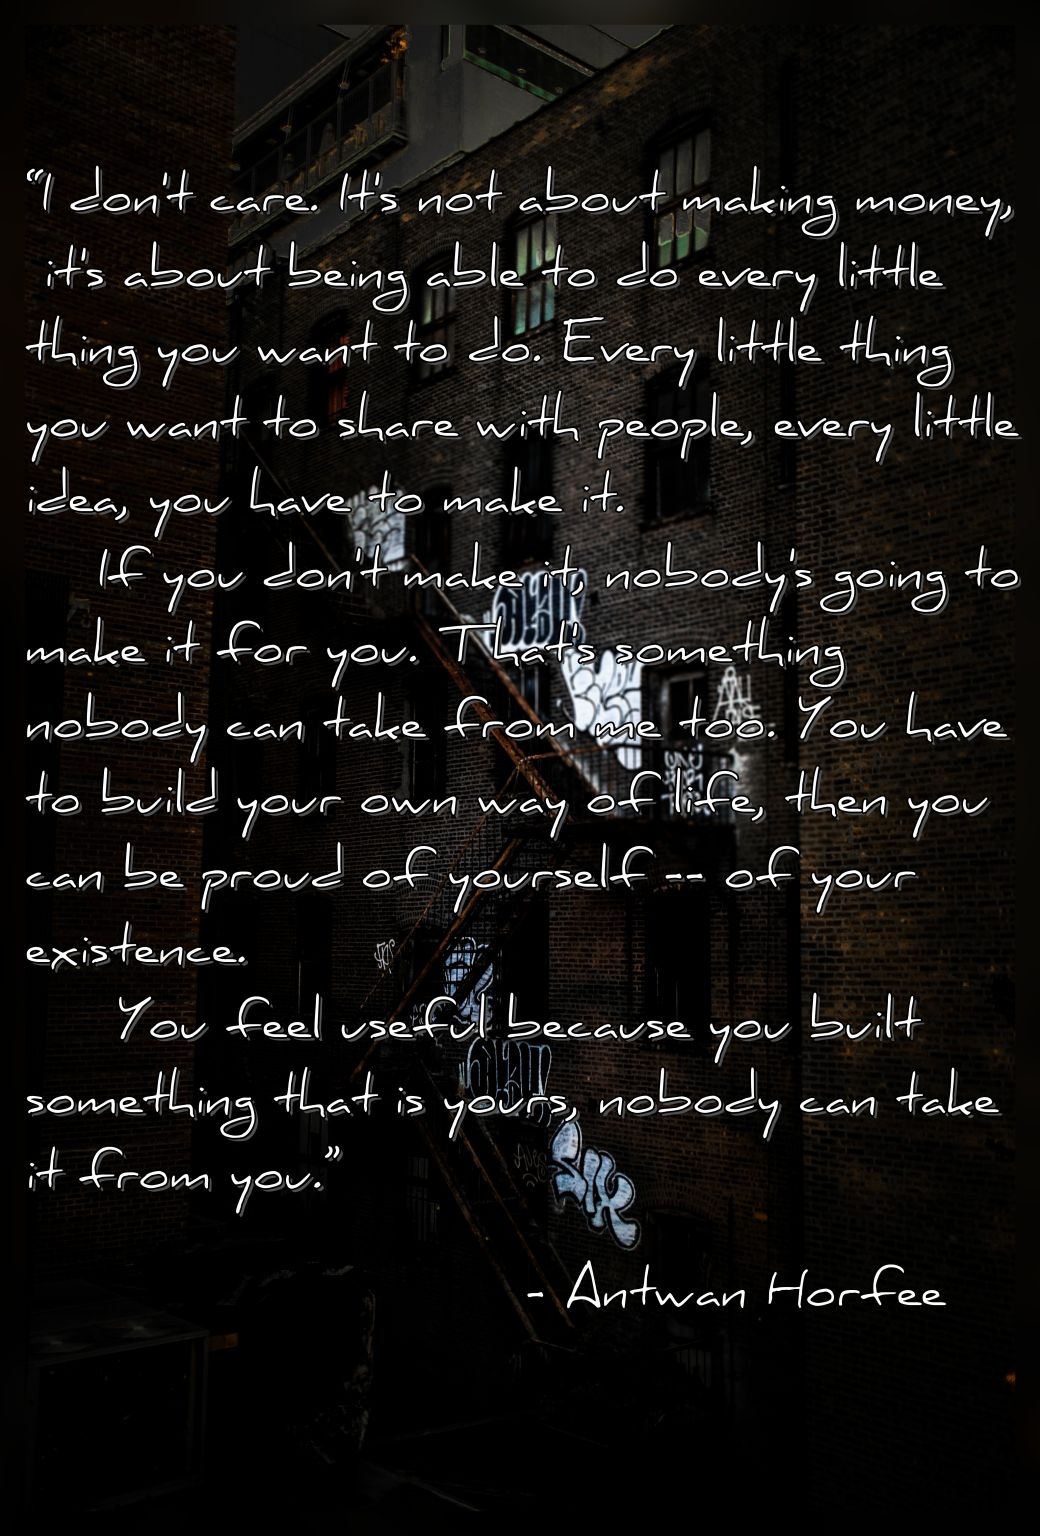 “I don't care. It's not about making money,
it's about being able to do every little
thing you want to do. Every little thing
you want to share with people, every little
idea, you have to make it.
If you don't make it, nobody's going to
make it for you. That's something
nobody can take from me too. You have
to build your own way of life, then you
can be proud of yourself -- of your
existence.
You feel useful because you built
something that is yours, nobody can take
it from you.”
- Antwan Horfee